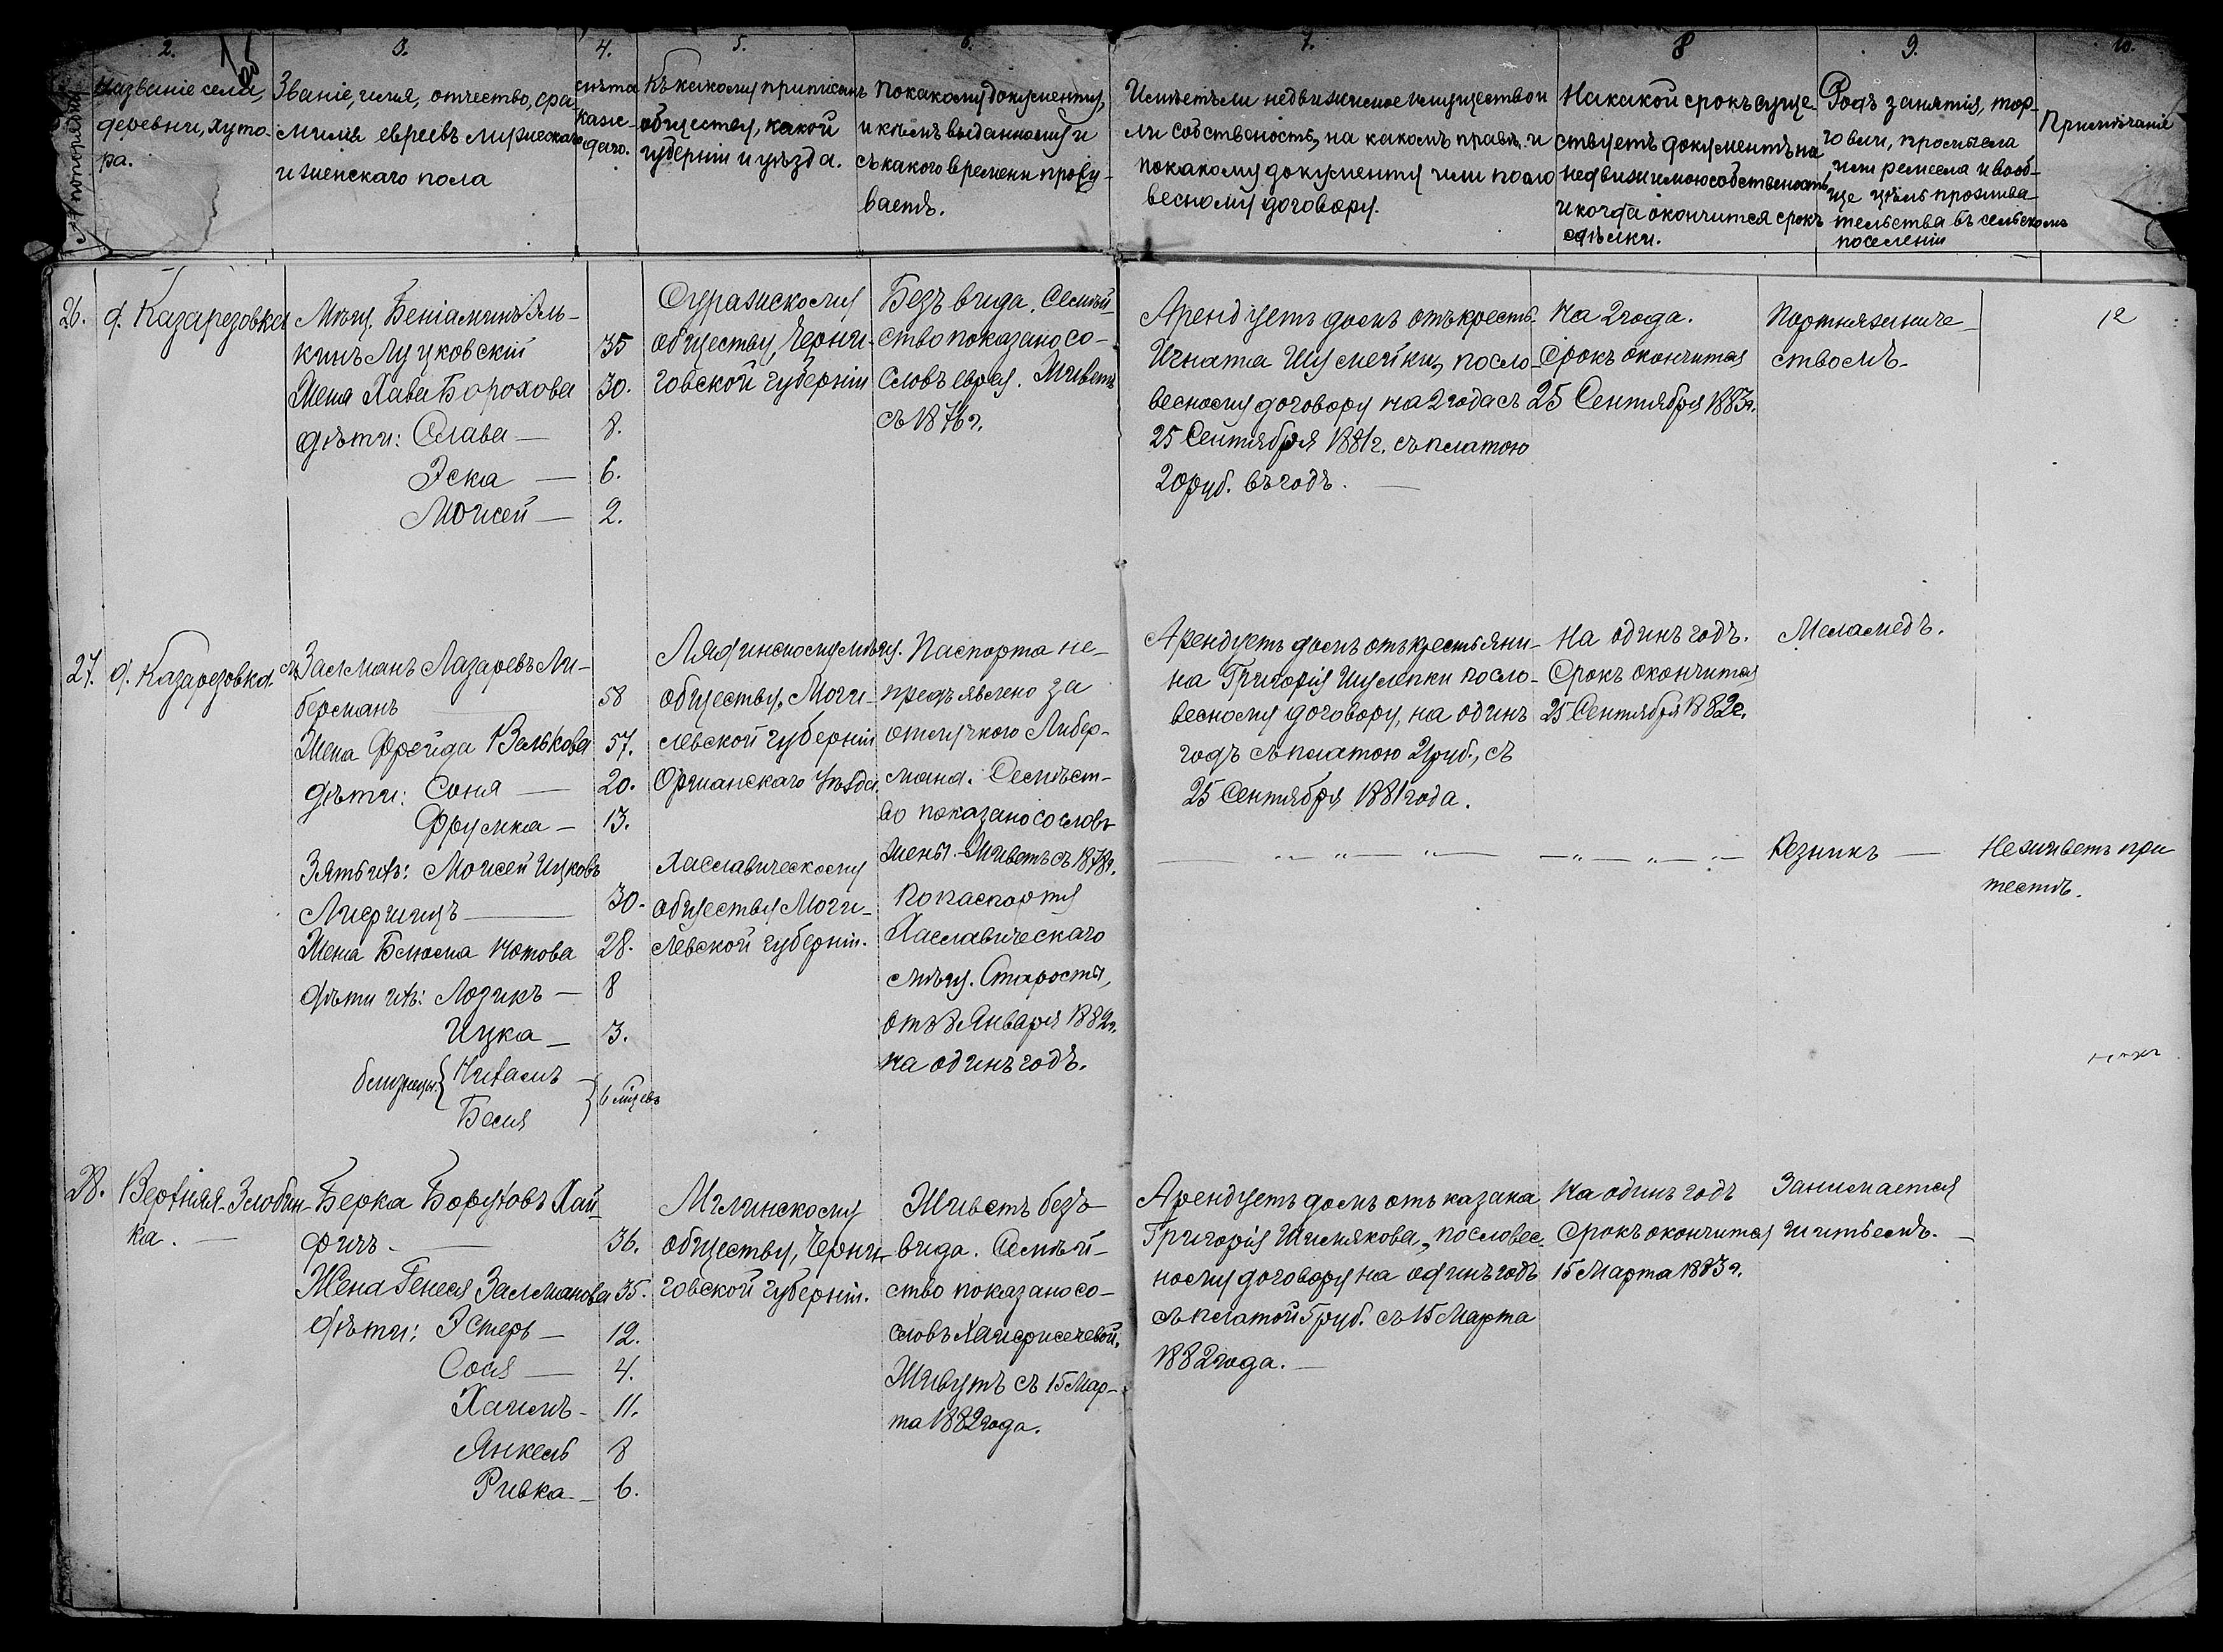 2.
3.
4.
5.
6.
7.
8
9.
10.
№ попорядку
Названіе села,
деревни, хуто-
ра.
Званіе, имя, отчество, фа-
милія евреевъ мужескаго
и женскаго пола
Лѣта
каж-
даго.
Къ какому приписанъ
обществу, какой
губерніи и уѣзда.
По какому документу,
и кѣмъ выданному и
съ какого времени прожи-
ваетъ.
Имѣетъ ли недвижимое имущество и
ли собственость, на какомъ правѣ и
по какому документу или по сло
весному договору.
На какой срокъ суще-
ствуетъ документъ на
недвижимою собственость
и когда окончится срокъ
сдѣлки.
Родъ занятія, тор-
говли, промысла
или ремесла и вооб-
ще цѣль прожива
тельства въ сельскомъ
поселеніи
Примѣчаніе
26.
д. Казарезовка
Мѣщ. Беніаминъ Эль-
кинъ Луцковскій
35
Жена Хава Борохова
30.
дѣти: Слава —
8.
Эска —
6.
Мошей —
2.
Суражскому
обществу, Черни-
говской губерніи
Безъ вида. Семѣй-
ство показано со-
словъ еврея. Живетъ
съ 1876 г.
Арендуетъ домъ отъ крестъ.
Игната Шумейки, посло-
весному договору на 2 года съ
25 Сентября 1881 г. съ платою
20 руб. въ годъ. —
На 2 года.
Срокъ окончится
25 Сентября 1883 г.
Портняжниче-
ствомъ.
12
27.
д. Казарезовка.
Залманъ Лазаревъ Ли-
берманъ
58
Жена Фрейда Валькова
57.
дѣти: Соня —
20.
Фрумка —
13.
Зять ихъ: Моисей Ицковъ
30.
Жена Блюма Нотова
28.
дѣти ихъ: Лозикъ —
8
Ицка —
3.
близнецы {
Нихамъ
Бася
} 6 мѣцевъ
Лядинскому мѣщ.
обществу, Моги-
левской губерніи
Оршанскаго Уѣзда.
Хаславическому
обществу Моги-
левской губерніи.
Паспорта не-
предъявлено за
отлучкою Либер-
мана. Семѣст-
во показано со словъ
жены. Живетъ съ 1878 г.
По паспорту
Хаславическаго
мѣщ. Старосты,
отъ 8 Января 1882 г.
на одинъ годъ.
Арендуетъ домъ отъ крестьяни-
на Григорія Шулепки посло-
весному договору, на одинъ
годъ съ платою 21 руб., съ
25 Сентября 1881 года.
На одинъ годъ.
Срокъ окончится
25 Сентября 1882 г.
Меламедъ.
— „ — „ —
— „ — „ —
Резникъ —
Не живетъ при
тестѣ.
28.
Верхняя-Злобин-
ка. —
Берка Боруховъ Хай-
фичъ —
36.
Жена Генеся Залманова
35.
дѣти: Эстеръ —
12.
Сося —
4.
Хаимъ —
11.
Янкель
8
Ривка —
6.
Мглинскому
обществу, Черни-
говской губерніи.
Живетъ безъ
вида. Семѣй-
ство показано со-
Живутъ съ 15 Мар-
та 1882 года.
Арендуетъ домъ отъ казака
Григорія Шимякова, пословес-
ному договору на одинъ годъ
съ платой 5 руб. съ 15 Марта
1882 года. —
На одинъ годъ
Срокъ окончится
15 Марта 1883 г.
Занимается
шитьемъ. —